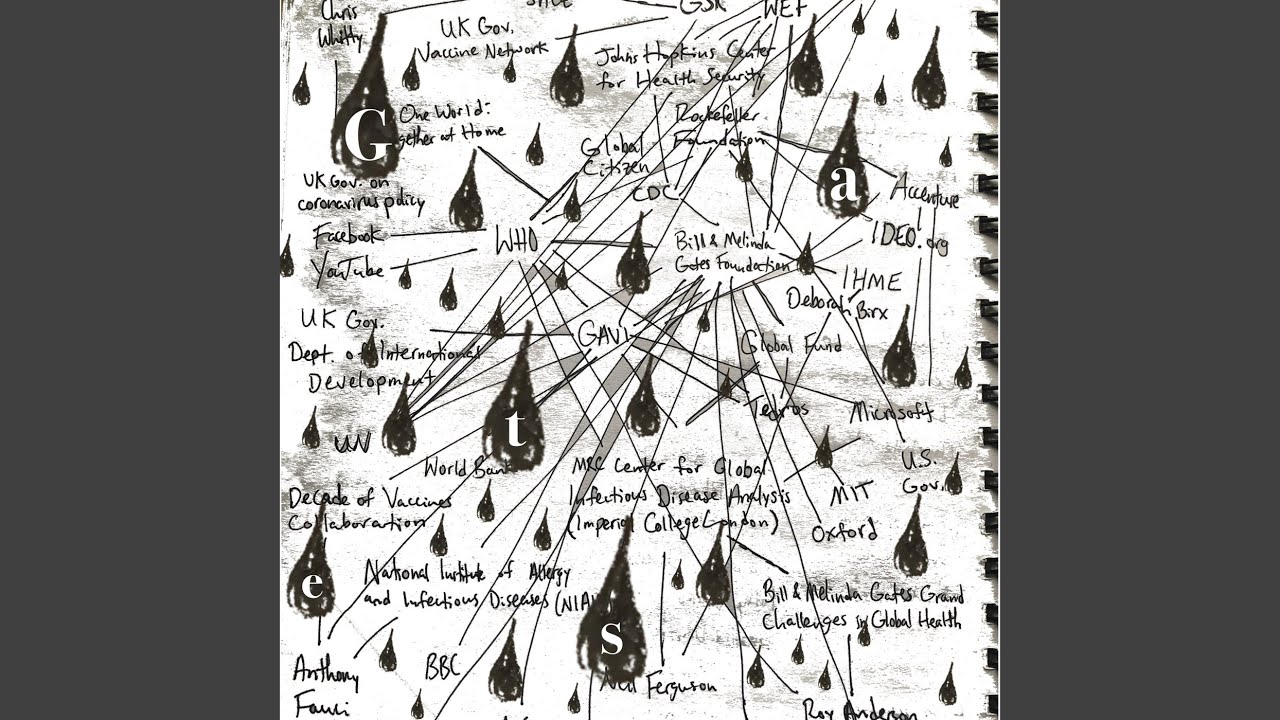 Chris
Whitty
SAGE
GSK
WEF
UK Gov.
Vaccine Network
Johns Hopkins Center
for Health Security
G
One World:
gether at Home
Rockefeller
Foundation
Global
Citizen
CDC
a
UK Gov. on
coronavirus policy
Accenture
Facebook
WHO
IDEO.org
YouTube
Bill & Melinda
Gates Foundation
IHME
Deborah Birx
UK Gov.
Dept. of International
Development
GAVI
Global Fund
t
Tedros
Microsoft
UN
World Bank
MRC Center for Global
Infectious Disease Analysis
(Imperial College London)
U.S.
Gov.
MIT
Oxford
Decade of Vaccines
Collaboration
e
National Institute of Allergy
and Infectious Diseases (NIAI
Bill & Melinda Gates Grand
Challenges in Global Health
s
Anthony
Fauci
BBC
Neil Ferguson
Roy Anderson